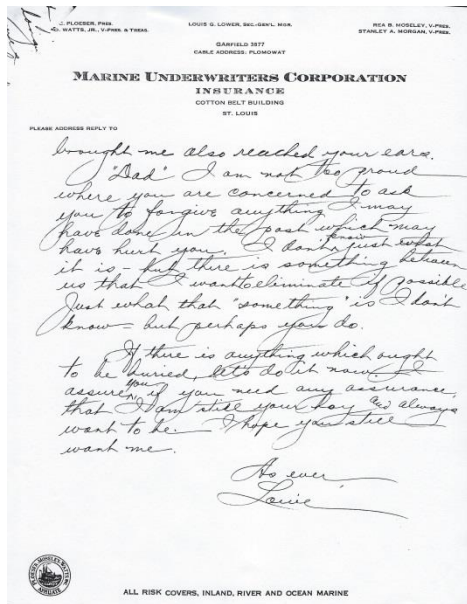 C. PLOESER, PRES.
D. WATTS, JR., V-PRES. & TREAS.
LOUIS G. LOWER, SEC.-GEN'L. MGR.
REA B. MOSELEY, V-PRES.
STANLEY A. MORGAN, V-PRES.
GARFIELD 3977
CABLE ADDRESS: PLOMOWAT
MARINE UNDERWRITERS CORPORATION
INSURANCE
COTTON BELT BUILDING
ST. LOUIS
PLEASE ADDRESS REPLY TO
brought me also reached your ears.
"Dad" I am not too proud
where you are concerned to ask
you to forgive anything I may
have done in the past which may
have hurt you. I don't know just what
it is - but there is something between
us that I want to eliminate if possible
Just what that "something" is I don't
know - but perhaps you do.
If there is anything which ought
to be buried, let's do it now. I
assure you, if you need any assurance,
that I am still your boy and always
want to be. I hope you still
want me.
As ever
Louie
PLOESER, MOSELEY, WATTS
AFFILIATE
ALL RISK COVERS, INLAND, RIVER AND OCEAN MARINE